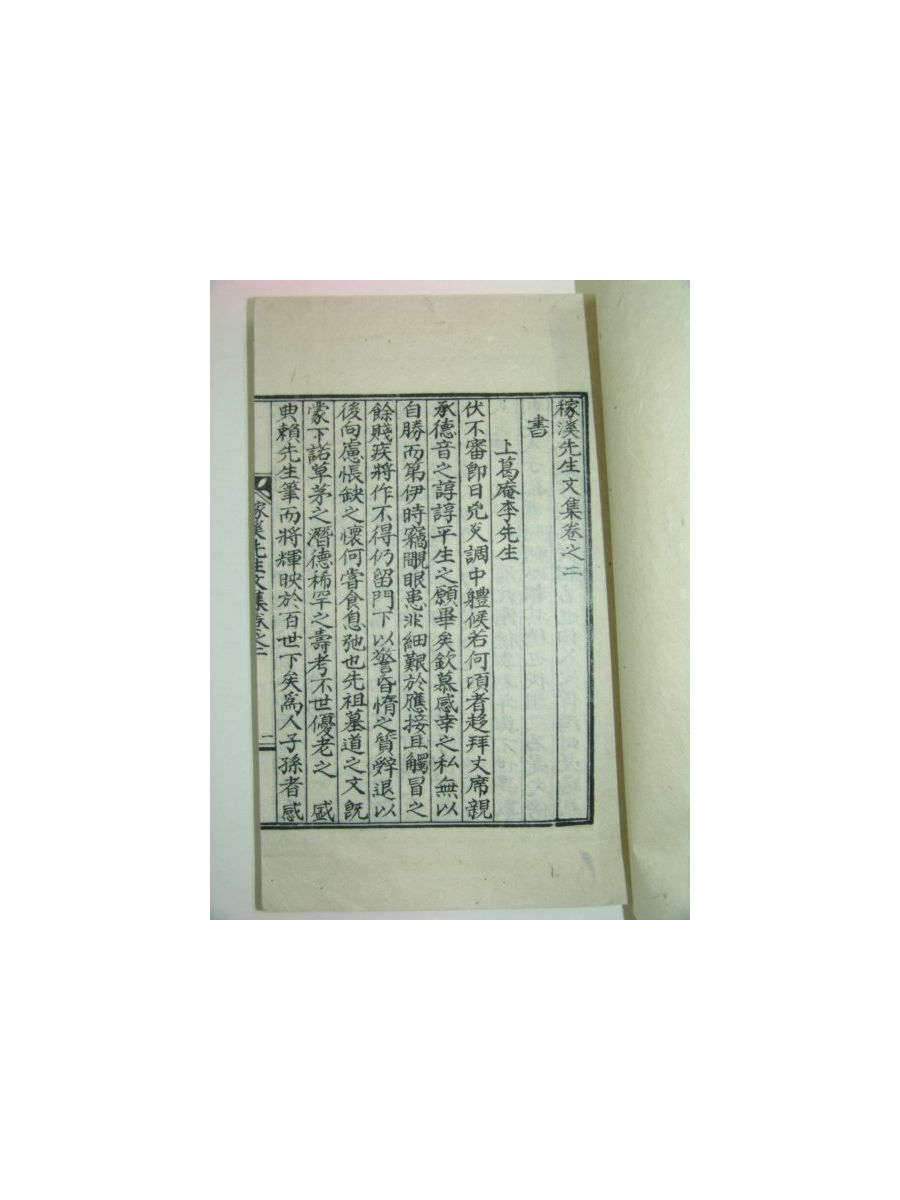 稼溪先生文集卷之二
書
上葛庵李先生
伏不審即日兇災調中軆候若何頃者趍拜丈席親
承德音之諄諄平生之願畢矣欽慕感幸之私無以
自勝而第伊時竊覸眼患非細艱於應接且觸冒之
餘賤疾將作不得仍留門下以警昏惰之質辭退以
後向慮悵缺之懷何嘗食息弛也先祖墓道之文旣
蒙下諾草茅之潛德稀罕之壽考不世優老之 盛
典賴先生筆而將輝映於百世下矣爲人子孫者感
稼溪先生文集卷之二 一